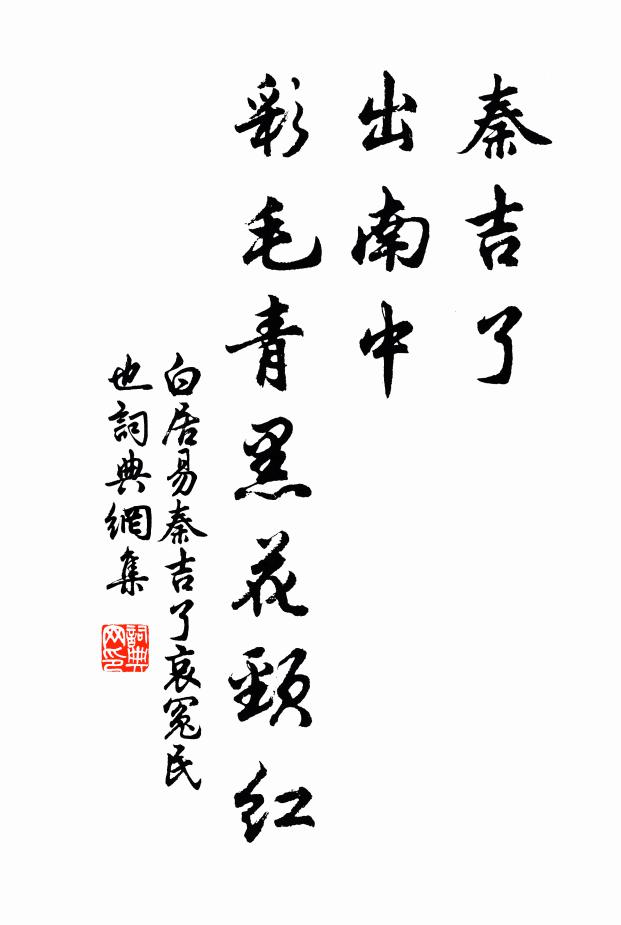 秦吉了
出南中
彩毛青黑花頸紅
白居易秦吉了哀冤民
也詞典網集
詞典
网印